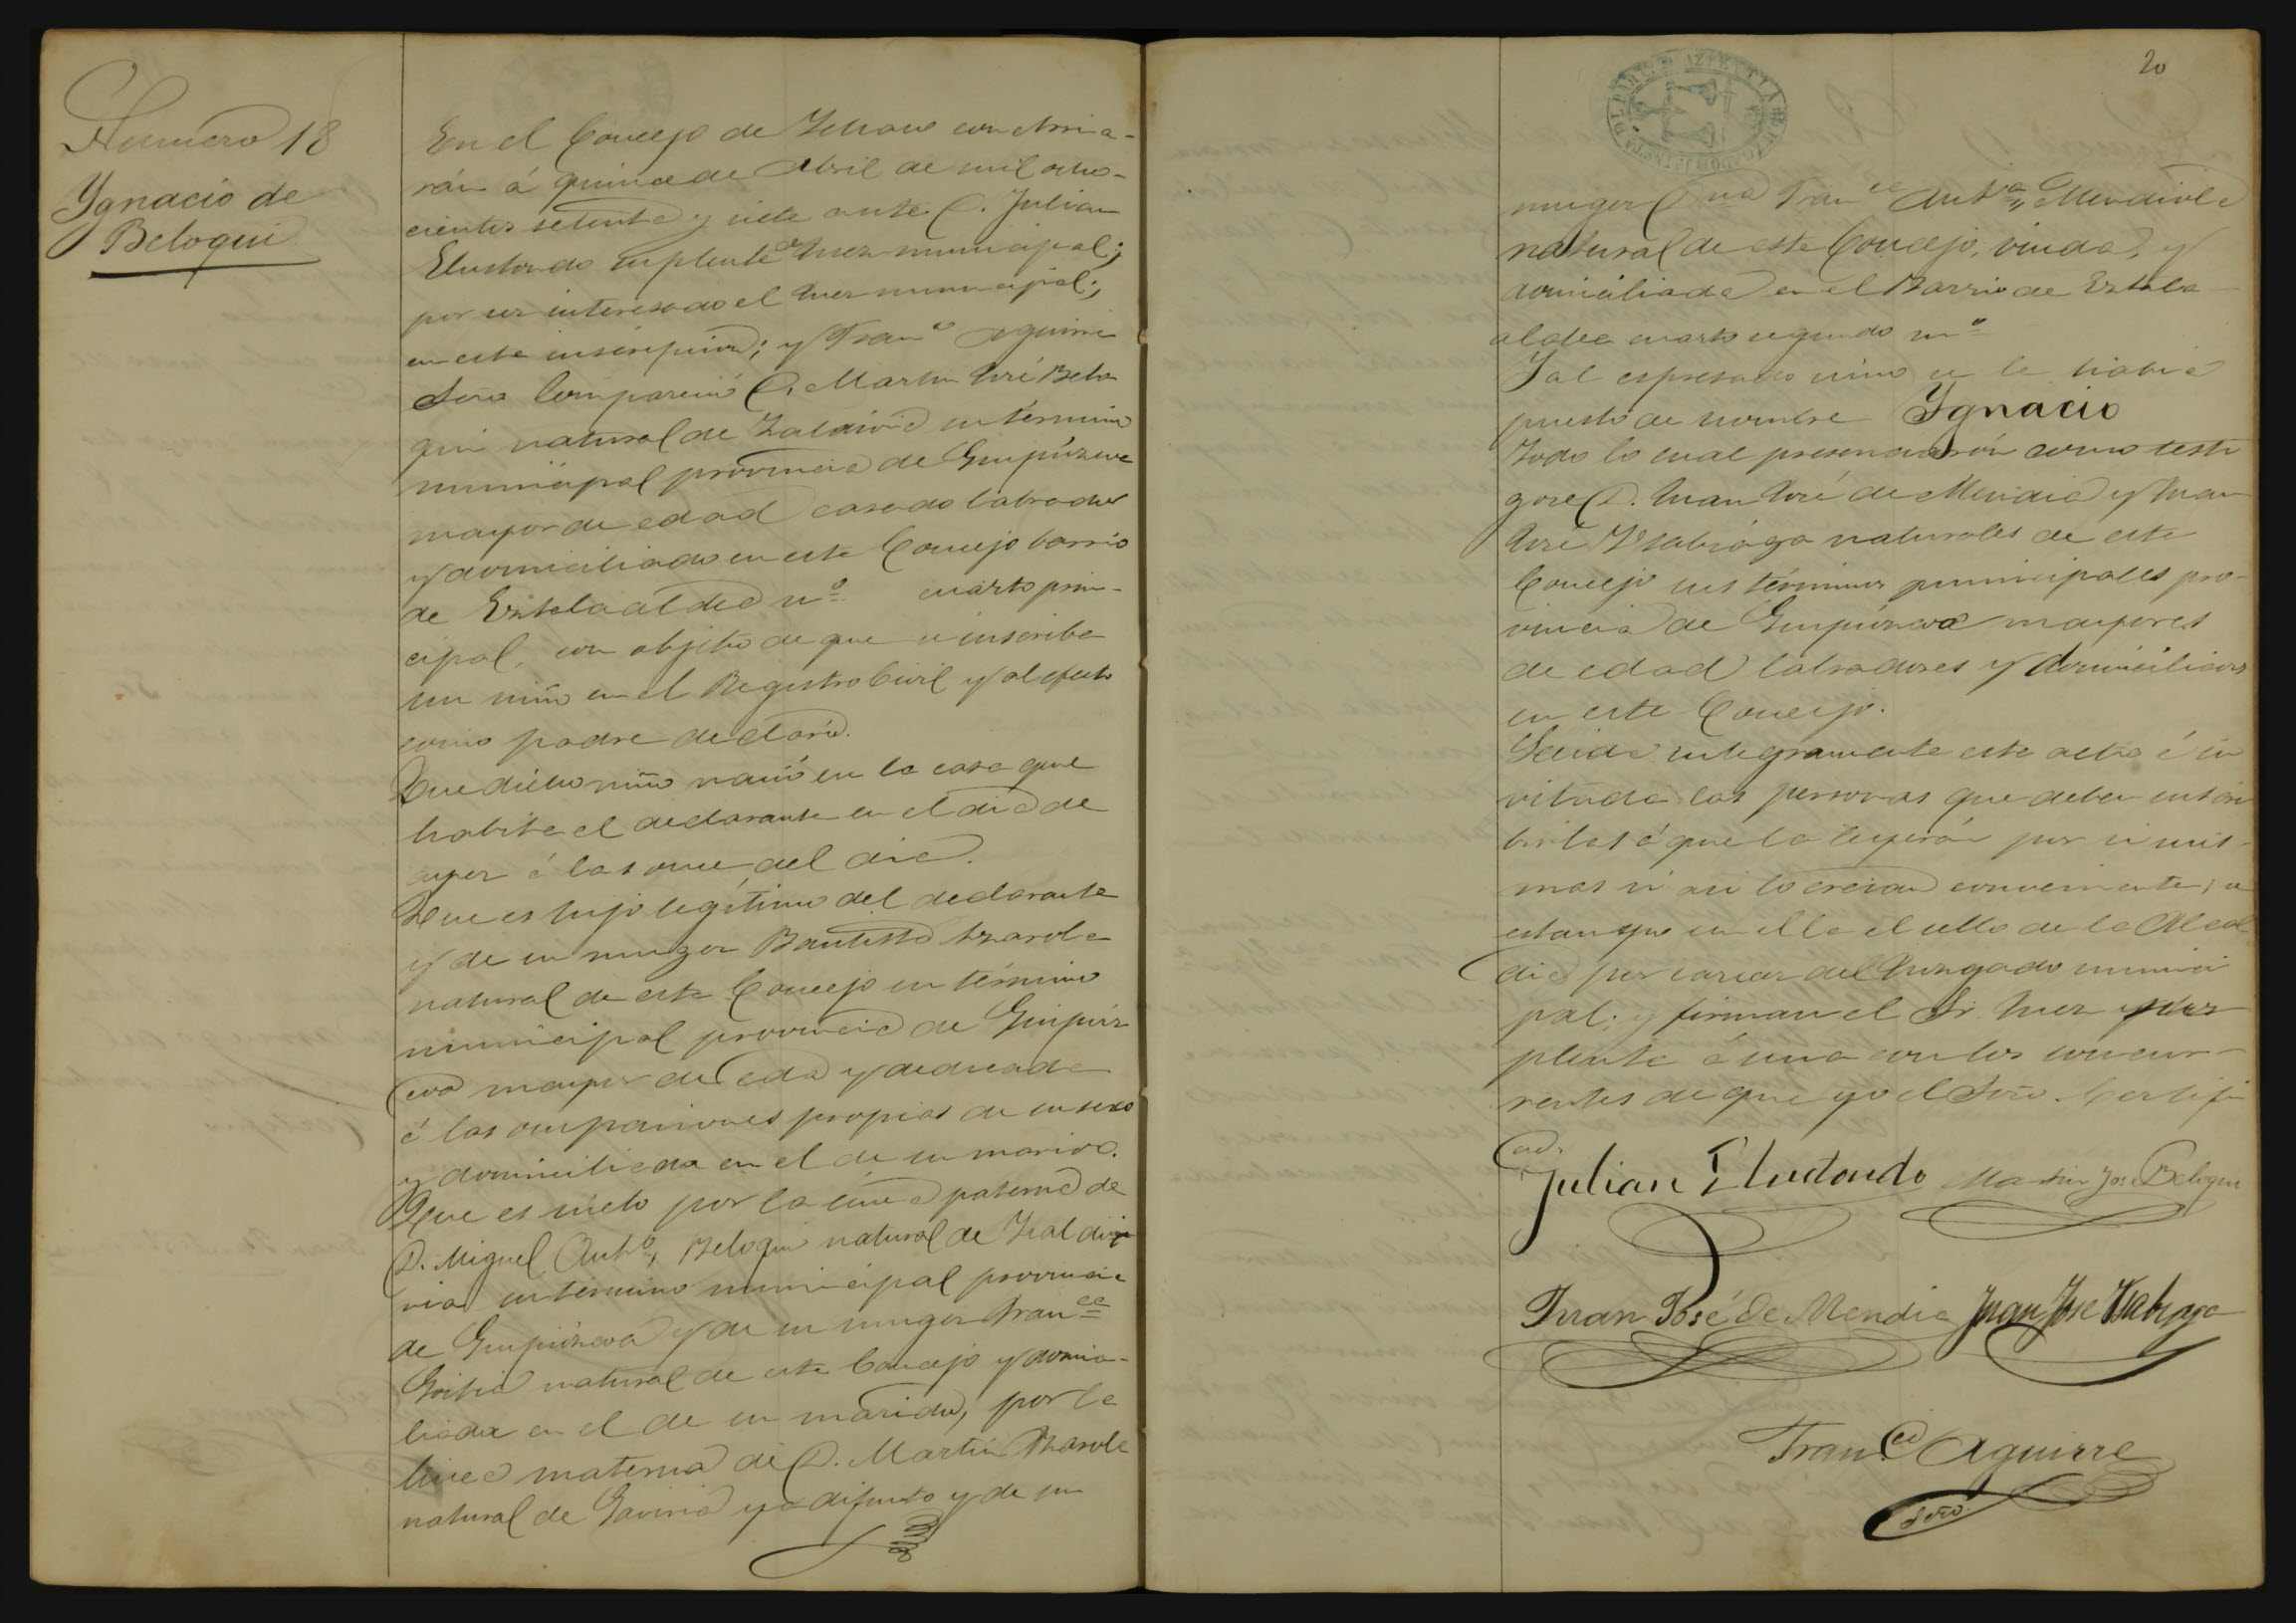 Numero 18
Ygnacio de
Beloqui
En el Concejo de Ichaso con Arria-
rán á quince de Abril de mil ocho-
cientos setenta y siete ante D. Julian
Elustondo suplente de Juez municipal;
por ser interesado el Juez municipal;
en esta inscripcion; y Fran.co Aguirre
Srio Compareció D. Martin José Belo
qui natural de Zaldivia su término
municipal provincia de Guipúzcoa
mayor de edad casado labrador
y domiciliado en este Concejo barrio
de aldea nº cuarto prin-
cipal, con objeto de que se inscriba
un niño en el Registro Civil y al efecto
como padre declaró.
Que dicho niño nació en la casa que
habita el declarante en el dia de
ayer á las once del dia.
Que es hijo legítimo del declarante
y de su muger Bautista
natural de este Concejo su término
municipal provincia de Guipúz
coa mayor de eda y dedicada
á las ocupaciones propias de su sexo
y domiciliada en el de su marido.
Que es nieto por la línea paterna de
D. Miguel Antº, Beloqui natural de Zaldi
via su término municipal provincia
de Guipúzcoa y de su muger Fran.ca
Goitia natural de este Concejo y domici-
liada en el de su marido, por la
linea materna de D. Martin
natural de Gaviria ya difunto y de su
20
muger Dña Fran.ca Antª,
natural de este Concejo, viuda, y
domiciliada en el Barrio de
aldea cuarto segundo nº
Y al espresado niño se le habia
puesto de nombre Ygnacio
Todo lo cual presenciarón como testi
gos D. Juan José de Mendia y Juan
José Ysabiaga naturales de este
Concejo sus términos municipales pro-
vincia de Guipúzcoa mayores
de edad labradores y domiciliados
en este Concejo.
Leida integramente esta acta é in
vitada las personas que deben suscri
birlas á que la leyerán por si mis-
mas si asi lo creian conveniente, se
estampo en ella el sello de la Alcal
dia por carecer del Juzgado munici
pal; y firman el Sr. Juez su
plente á una con los concur-
rentes de que yo el Srio. Certifi
co.
Julian Elustondo Martin Jose Beloqui
Juan José de Mendia Juan Jose Ysabiaga
Fran.co Aguirre
Srio.